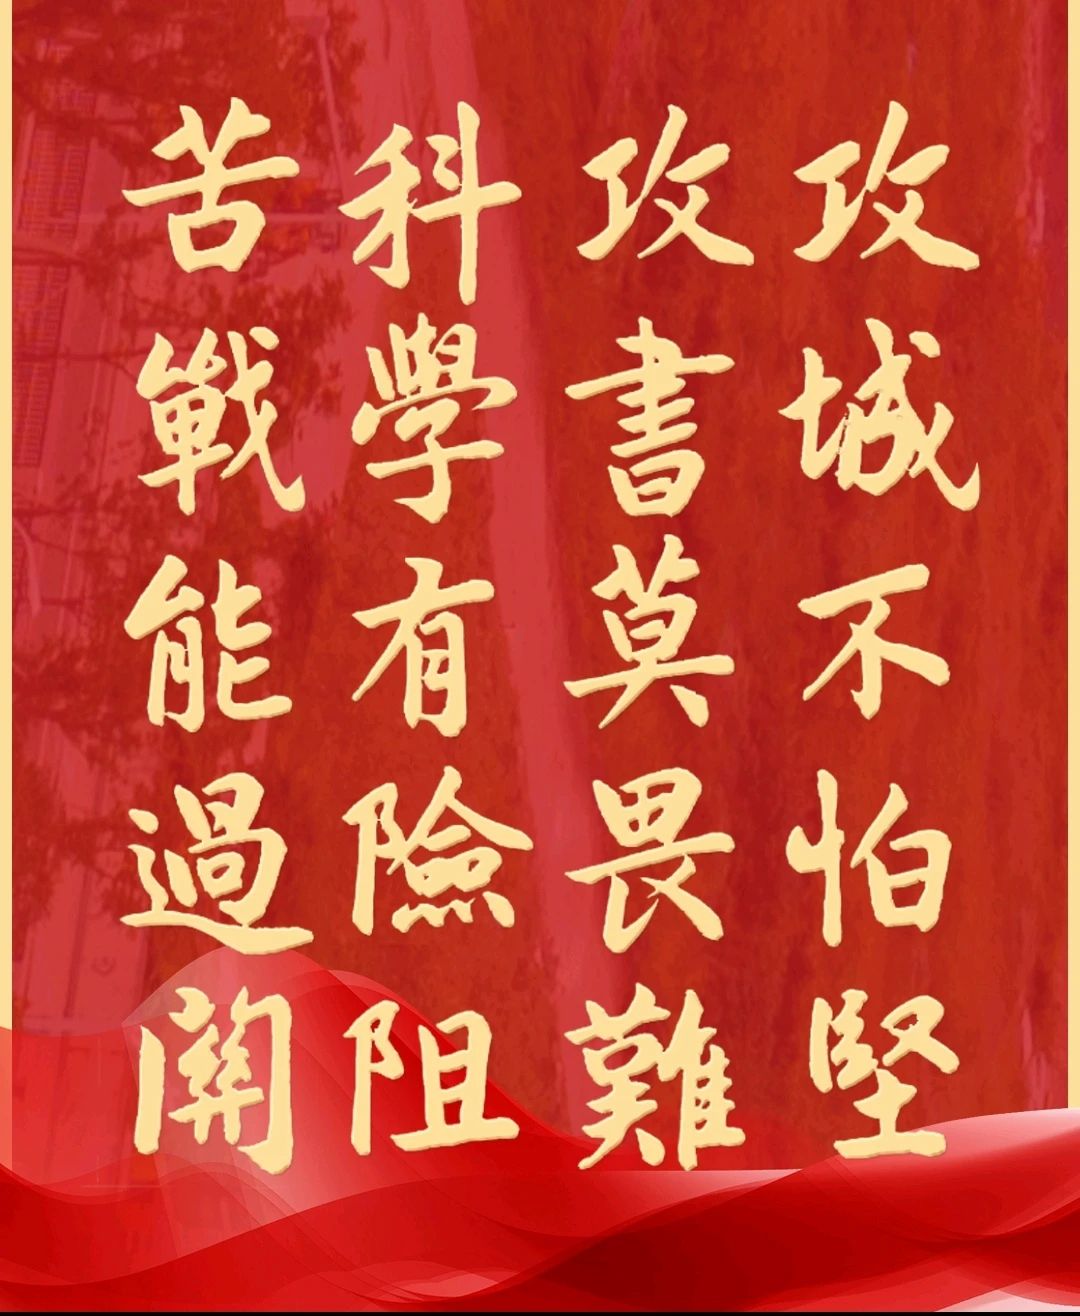 攻城不怕堅
攻書莫畏難
科學有險阻
苦戰能過關